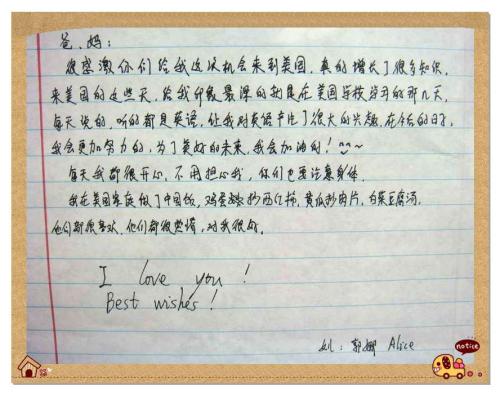 爸、妈：
很感激你们给我这次机会来到美国，真的增长了很多知识，
来美国的这些天，给我印象最深的就是在美国学校学习的那几天，
每天说的，听的都是英语，让我对英语产生了很大的兴趣，在后的日子，
我会更加努力的，为了美好的未来，我会加油的！^^~
每天我都很开心，不用担心我，你们也要注意身体。
我在美国家庭做了中国饭，鸡蛋炒西红柿，黄瓜炒肉片，白菜豆腐汤，
他们都很喜欢，他们都很热情，对我很好。
I love you !
Best wishes !
儿：郭娜 Alice
notice